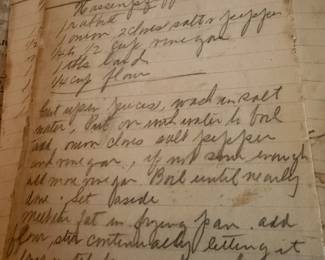 Hassenpfeff
1 rabbit
1 onion, 2 cloves salt & pepper
1/4 to 1/2 cup vinegar
1 tbs lard
1/4 cup flour
Cut up in pieces, wash in salt
water, Put on with water to boil
add, onion cloves salt pepper
and vinegar, if not sour enough
add more vinegar. Boil until nearly
done. Set aside
melt the fat in frying pan. add
flour, stir continually letting it